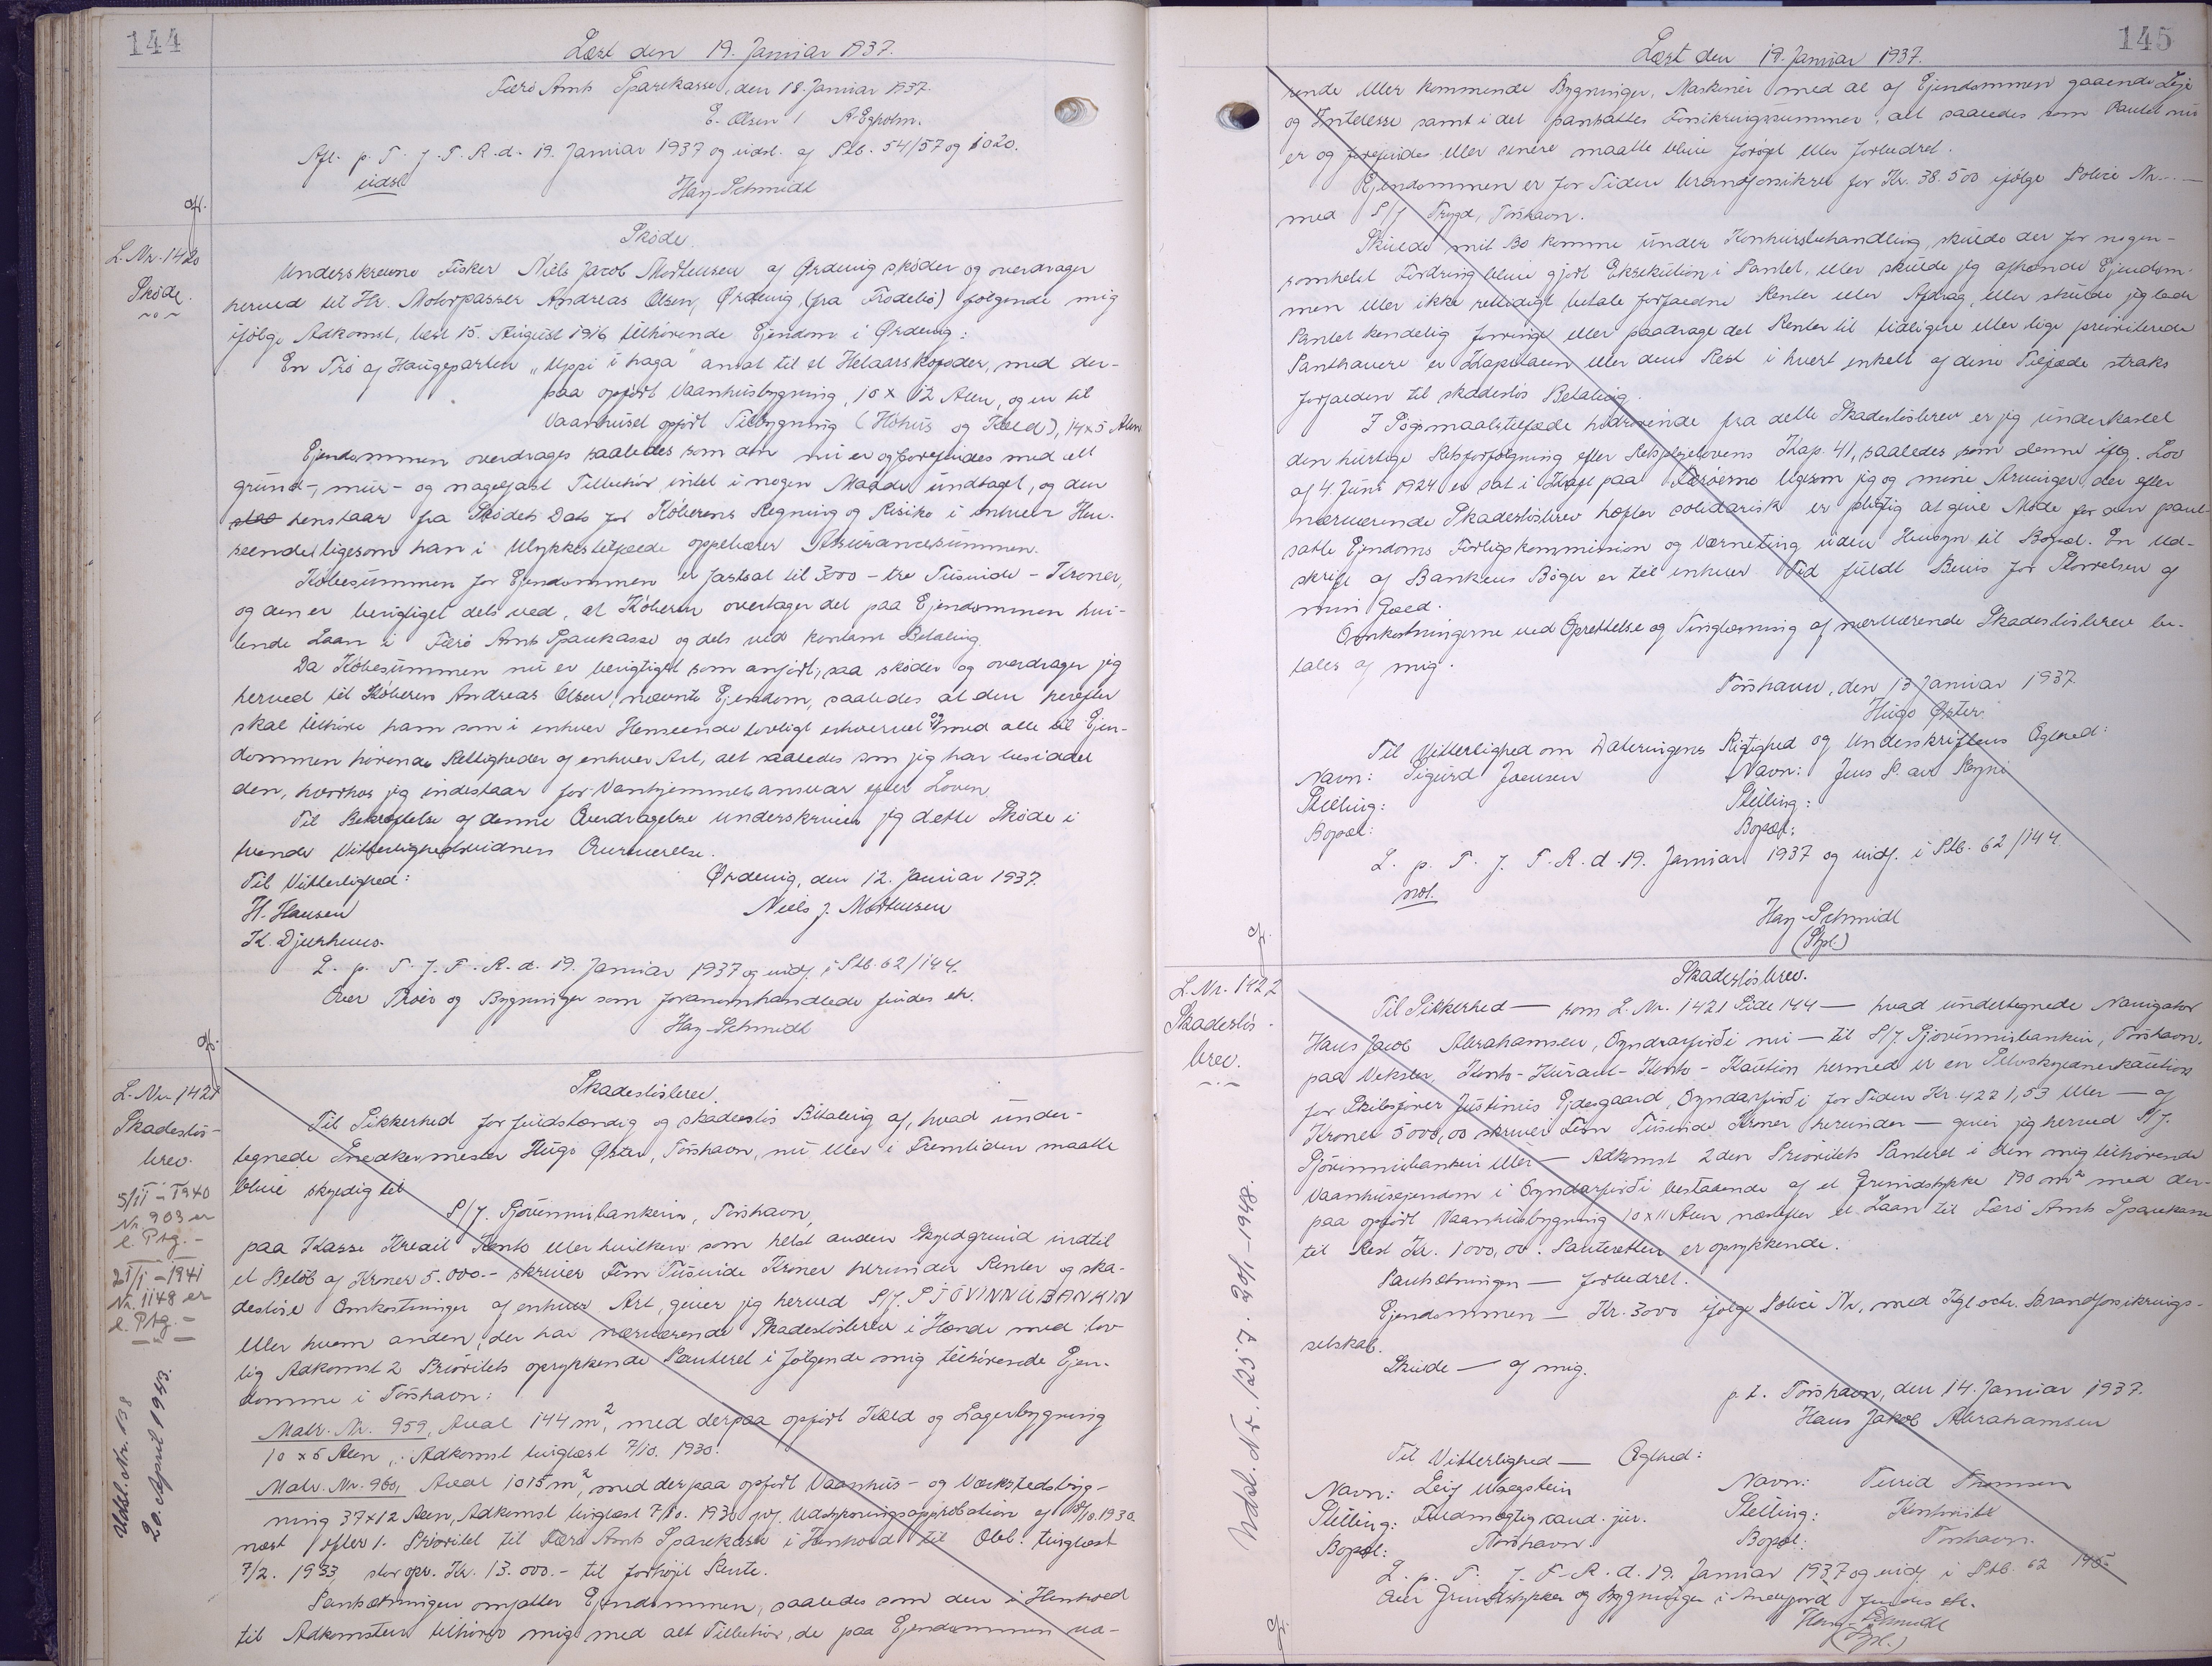 144
Læst den 19. Januar 1937.
Færø Amts Sparekasse, den 18. Januar 1937.
E. Olsen / A. Egholm.
Afl. p. T. f. F. R. d. 19. Januar 1937 og udsl. af Skb. 54/57 og 1020.
udsl
Hay-Schmidt
L. Nr. 1420
Skøde.
Skøde
Underskrevne Fisker Niels Jacob Morthensen af Ørdevig skøder og overdrager
herved til Hr. Motorpasser Andreas Olsen, Ørdevig, (fra Trodebø) følgende mig
ifølge Adkomst, læst 15. August 1916 tilhørende Ejendom i Ørdevig:
En Trø af Haugeparten "Uppi i haga" ansat til et Helaarskofoder, med der-
paa opført Vaanhusbygning, 10 x 12 Alen, og en til
Vaanhuset opført Tilbygning (Hóhus og Kæld), 14 x 5 Alen
Ejendommen overdrages saaledes som den nu er og forefindes med alt
grund-, mur- og nagelfast Tilbehør intet i nogen Maade undtaget, og den
henstaar fra Skødets Dato for Køberens Regning og Risiko i enhver Hen-
seende, ligesom han i Ulykkestilfælde oppebærer Assurancesummen.
Købesummen for Ejendommen er fastsat til 3000 - tre Tusinde - Kroner,
og den er berigtiget dels ved, at Køberen overtager det paa Ejendommen hvi-
lende Laan i Færø Amts Sparekasse og dels ved kontant Betaling.
Da Købesummen nu er berigtiget som anført, saa skøder og overdrager jeg
herved til Køberen Andreas Olsen, nævnte Ejendom, saaledes at den herefter
skal tilhøre ham som i enhver Henseende lovligt erhvervet og med alle til Ejen-
dommen hørende Rettigheder af enhver Art, alt saaledes som jeg har besiddet
den, hvorhos jeg indestaar for Vanhjemmelsansvar efter Loven.
Til Bekræftelse af denne Overdragelse underskriver jeg dette Skøde i
tvende Vitterlighedsvidners Overværelse.
Til Vitterlighed: Ørdevig, den 12. Januar 1937.
H. Hansen Niels J. Morthensen
K. Djurhuus.
L. p. T. f. F. R. d. 19. Januar 1937 og indf. i Skb. 62/144.
Over Trøer og Bygninger som foranomhandlede findes ek.
Hay-Schmidt
L. Nr. 1421
Skadesløs-
brev.
5/11 - 1940
Nr. 903 er
l. Ptg. -
21/1 - 1941
Nr. 1148 er
l. Ptg. -
Udsl. Nr. 138
20. April 1943.
Skadesløsbrev.
Til Sikkerhed for fuldstændig og skadesløs Betaling af, hvad under-
tegnede Snedkermester Hugo Øster, Tórshavn, nu eller i Fremtiden maatte
blive skyldig til
S/f. Sjóvinnubankin, Tórshavn,
paa Kasse Kredit Konto eller hvilken som helst anden Skyldgrund indtil
et Beløb af Kroner 5.000.- skriver Fem Tusinde Kroner herunder Renter og ska-
desløse Omkostninger af enhver Art, giver jeg herved S/f. SJÓVINNUBANKIN
eller hvem anden, der har nærværende Skadesløsbrev i Hænde med lov-
lig Adkomst 2 Prioritets oprykkende Panteret i følgende mig tilhørende Ejen-
domme i Tórshavn:
Matr. Nr. 959, Areal 144 m², med derpaa opført Kæld og Lagerbygning
10 x 5 Alen, Adkomst tinglæst 7/10. 1930.
Matr. Nr. 960, Areal 1015 m², med derpaa opført Vaanhus- og Værkstedsbyg-
ning 37 x 12 Alen, Adkomst tinglæst 7/10. 1930 jvf. Udstykningsapprobation af 10/10. 1930.
næst efter 1. Prioritet til Færø Amts Sparekasse i Henhold til Obl. tinglæst
7/2. 1933 stor opr. Kr. 13.000.- til forhøjet Rente.
Pantsætningen omfatter Ejendommen, saaledes som den i Henhold
til Adkomsten tilhører mig med alt Tilbehør, de paa Ejendommen væ-
145
Læst den 19. Januar 1937.
rende eller kommende Bygninger, Maskiner med al af Ejendommen gaaende Leje
og Interesse samt i det pantsattes Forsikringssummer, alt saaledes som Pantet nu
er og forefindes eller senere maatte blive forøget eller forbedret.
Ejendommen er for Tiden brandforsikret for Kr. 38.500 ifølge Police Nr. -
med S/f Trygd, Tórshavn.
Skulde mit Bo komme under Konkursbehandling, skulde der for nogen-
somhelst Fordring blive gjort Eksekution i Pantet, eller skulde jeg afhænde Ejendom-
men eller ikke rettidigt betale forfaldne Renter eller Afdrag, eller skulde jeg lade
Pantet kendelig forringe eller paadrage det Renter til tidligere eller lige prioriterede
Panthavere er Kapitalen eller dens Rest i hvert enkelt af disse Tilfælde straks
forfalden til skadesløs Betaling.
I Søgsmaalstilfælde hidrørende fra dette Skadesløsbrev er jeg underkastet
den hurtige Retsforfølgning efter Retsplejelovens Kap. 41, saaledes som denne iflg. Lov
af 4. Juni 1924 er sat i Kraft paa Færøerne ligesom jeg og mine Arvinger, der efter
nærværende Skadesløsbrev hæfter solidarisk er pligtig at give Møde for den pant-
satte Ejendoms Forligskommission og Værneting uden Hensyn til Bopæl. En Ud-
skrift af Bankens Bøger er til enhver Tid fuldt Bevis for Størrelsen af
min Gæld.
Omkostningerne ved Oprettelse og Tinglæsning af nærværende Skadesløsbrev be-
tales af mig.
Tórshavn, den 13 Januar 1937
Hugo Øster.
Til Vitterlighed om Dateringens Rigtighed og Underskriftens Ægthed:
Navn: Sigurd Joensen Navn: Jens P. av Reyni
Stilling: Stilling:
Bopæl: Bopæl:
L. p. T. f. F. R. d. 19. Januar 1937 og indf. i Skb. 62/144
not.
Hay-Schmidt
(Stpl.)
L. Nr. 1422
Skadesløs-
brev.
Udsl. Nr. 1257. 20/1-1948.
Skadesløsbrev.
Til Sikkerhed — som L. Nr. 1421 Side 144 — hvad undertegnede Navigatør
Hans Jacob Abrahamsen, Oyndrarfirði nu — til S/f. Sjóvinnubankin, Tórshavn,
paa Veksler, Konto-Kurant-Konto-Kaution hermed er en Selvskyldnerkaution
for Skibsfører Justinus Ejdesgaard, Oyndarfirði for Tiden Kr. 4221,53 eller — af
Kroner 5000,00 skriver Fem Tusinde Kroner herunder — giver jeg herved S/f.
Sjóvinnubankin eller — Adkomst 2den Prioritets Panteret i den mig tilhørende
Vaanhusejendom i Oyndarfirði bestaaende af et Grundstykke 190 m² med der-
paa opført Vaanhusbygning 10 x 11 Alen næstefter et Laan til Færø Amts Sparekasse
til Rest Kr. 1000,00. Panteretten er oprykkende.
Pantsætningen — forbedret.
Ejendommen — Kr. 3000 ifølge Police Nr, med Kgl. octr. Brandforsikrings-
selskab.
Skulde — af mig.
p. t. Tórshavn, den 14. Januar 1937.
Hans Jakob Abrahamsen
Til Vitterlighed — Ægthed:
Navn: Leif Waagstein Navn: Turid Thomsen
Stilling: Fuldmægtig cand. jur. Stilling: Kontorist
Bopæl: Tórshavn Bopæl: Tórshavn.
L. p. T. f. F. R. d. 19. Januar 1937 og indf. i Skb. 62 145
Over Grundstykker og Bygninger i Andefjord findes ek.
Hay-Schmidt
(Stpl.)